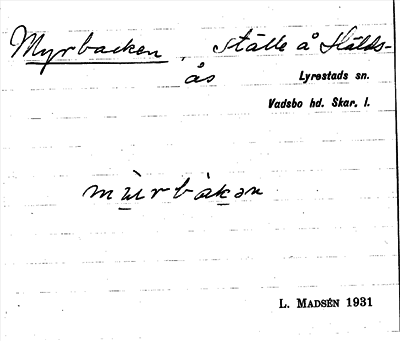 Myrbacken, ställe å Hålds-
ås
Lyrestads sn.
Vadsbo hd. Skar. l.
L. MADSÉN 1931